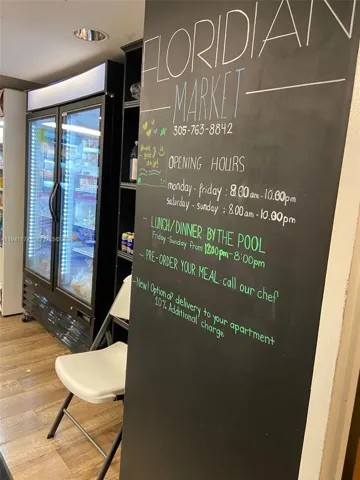 FLORIDIAN
MARKET
305-763-8842
OPENING HOURS
monday - friday : 8:00 am - 10:00pm
saturday - sunday : 8:00am - 10:00pm
- LUNCH/DINNER BY THE POOL
Friday-Sunday from 12:00pm - 8:00pm
- PRE-ORDER YOUR MEAL-call our chef
- New! Option of delivery to your apartment
20% Additional charge